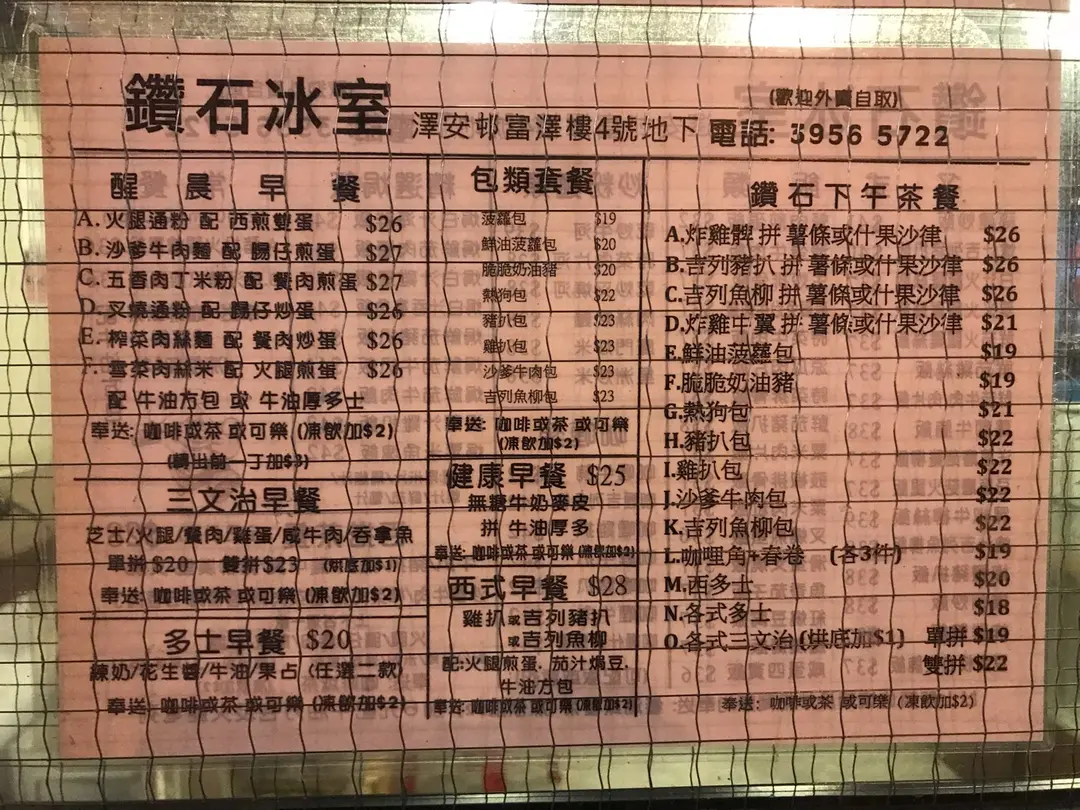 鑽石冰室
(歡迎外賣自取)
澤安邨富澤樓4號地下 電話: 3956 5722
醒晨早餐
A. 火腿通粉 配 西煎雙蛋 $26
B. 沙爹牛肉麵 配 腸仔煎蛋 $27
C. 五香肉丁米粉 配 餐肉煎蛋 $27
D. 叉燒通粉 配 腸仔炒蛋 $26
E. 榨菜肉絲麵 配 餐肉炒蛋 $26
F. 雪菜肉絲米 配 火腿煎蛋 $26
配 牛油方包 或 牛油厚多士
奉送: 咖啡或茶 或可樂 (凍飲加$2)
(轉出前一丁加$3)
三文治早餐
芝士/火腿/餐肉/雞蛋/咸牛肉/吞拿魚
單拼 $20 雙拼$23 (烘底加$1)
奉送: 咖啡或茶 或可樂 (凍飲加$2)
多士早餐 $20
練奶/花生醬/牛油/果占 (任選二款)
奉送: 咖啡或茶 或可樂 (凍飲加$2)
包類套餐
菠蘿包 $19
鮮油菠蘿包 $20
脆脆奶油豬 $20
熱狗包 $22
豬扒包 $23
雞扒包 $23
沙爹牛肉包 $23
吉列魚柳包 $23
奉送: 咖啡或茶 或可樂
(凍飲加$2)
健康早餐 $25
無糖牛奶麥皮
拼 牛油厚多
奉送: 咖啡或茶 或可樂 (凍飲加$2)
西式早餐 $28
雞扒或吉列豬扒
或吉列魚柳
配:火腿煎蛋. 茄汁焗豆.
牛油方包
奉送: 咖啡或茶 或可樂 (凍飲加$2)
鑽石下午茶餐
A.炸雞髀 拼 薯條或什果沙律 $26
B.吉列豬扒 拼 薯條或什果沙律 $26
C.吉列魚柳 拼 薯條或什果沙律 $26
D.炸雞中翼 拼 薯條或什果沙律 $21
E.鮮油菠蘿包 $19
F.脆脆奶油豬 $19
G.熱狗包 $21
H.豬扒包 $22
I.雞扒包 $22
J.沙爹牛肉包 $22
K.吉列魚柳包 $22
L.咖哩角+春卷 (各3件) $19
M.西多士 $20
N.各式多士 $18
O.各式三文治(烘底加$1) 單拼 $19
雙拼 $22
奉送: 咖啡或茶 或可樂 (凍飲加$2)